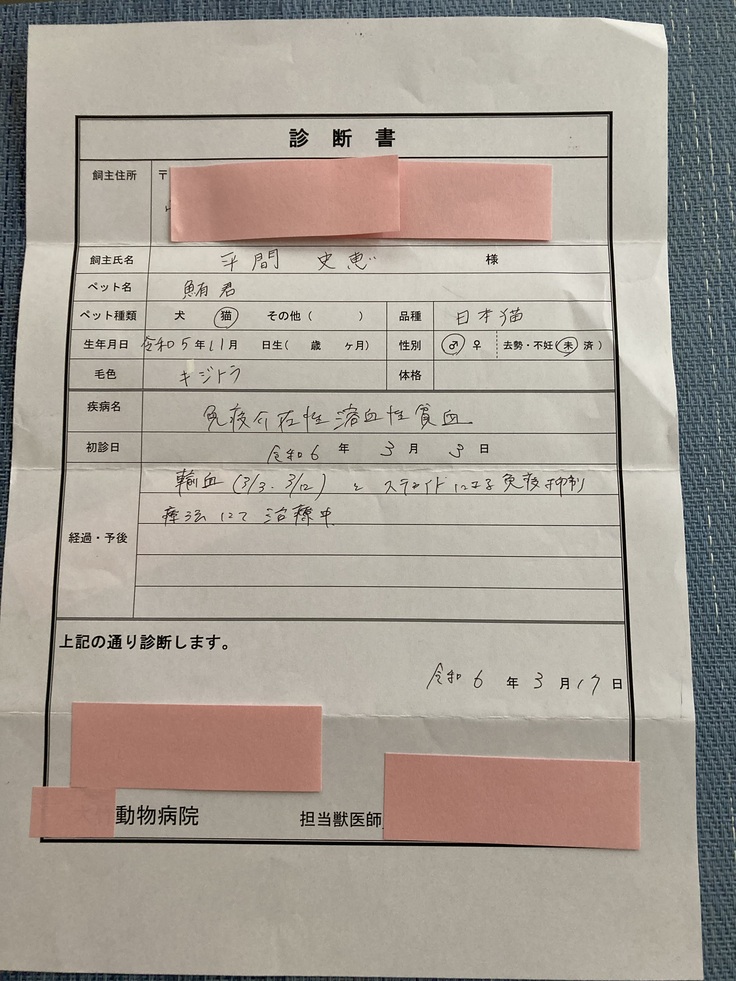 診断書
飼主住所 〒
飼主氏名 平間 史恵 様
ペット名 鮪君
ペット種類 犬 猫 その他（ ） 品種 日本猫
生年月日 令和5年11月 日生（ 歳 ヶ月） 性別 ♂ ♀ 去勢・不妊（未 済）
毛色 キジトラ 体格
疾病名 免疫介在性溶血性貧血
初診日 令和6年3月3日
輸血（3/3、3/12）とステロイドによる免疫抑制
経過・予後 療法にて治療中
上記の通り診断します。
令和6年3月17日
動物病院 担当獣医師